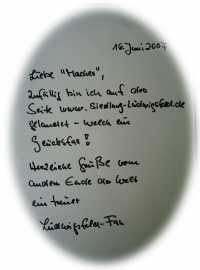 16. Juni 2007
Liebe "Macher",
zufällig bin ich auf die
Seite www.Siedlung-Ludwigsfeld.de
gelandet - welch ein
Glücksfall!
Herzliche Grüße vom
anderen Ende der Welt
ein treuer
Ludwigsfeld-Fan